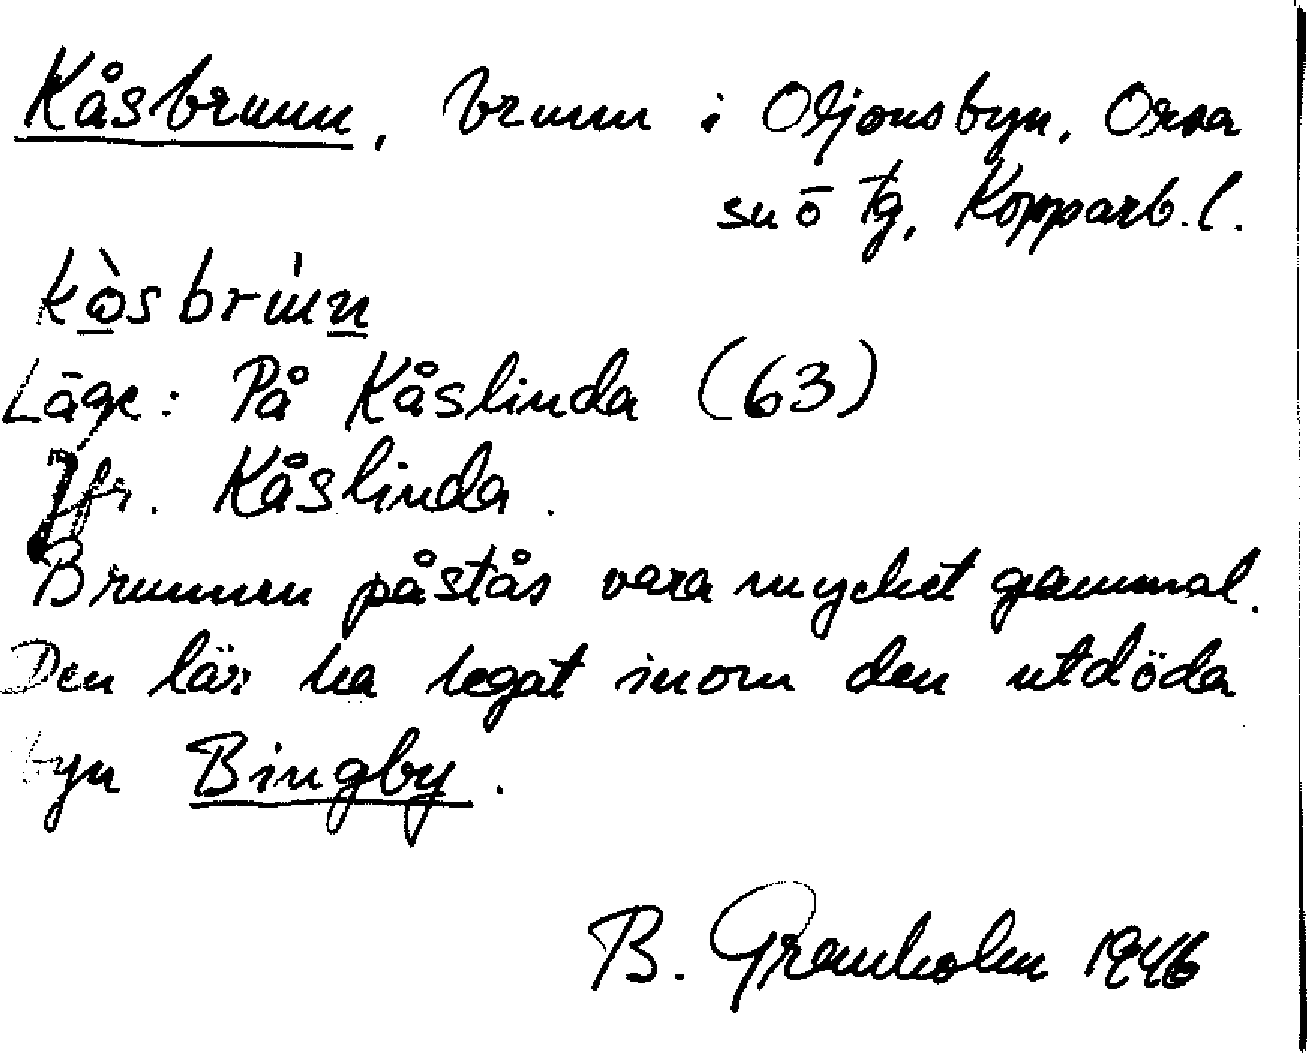 Kåsbrunn, brunn i Oljonsbyn, Orsa
sn ō tg, Kopparb. l.
kòsbrùnn
Läge: På Kåslinda (63)
Jfr. Kåslinda.
Brunnen påstås vara mycket gammal.
Den lär ha legat inom den utdöda
byn Bingby.
B. Granholm 1946